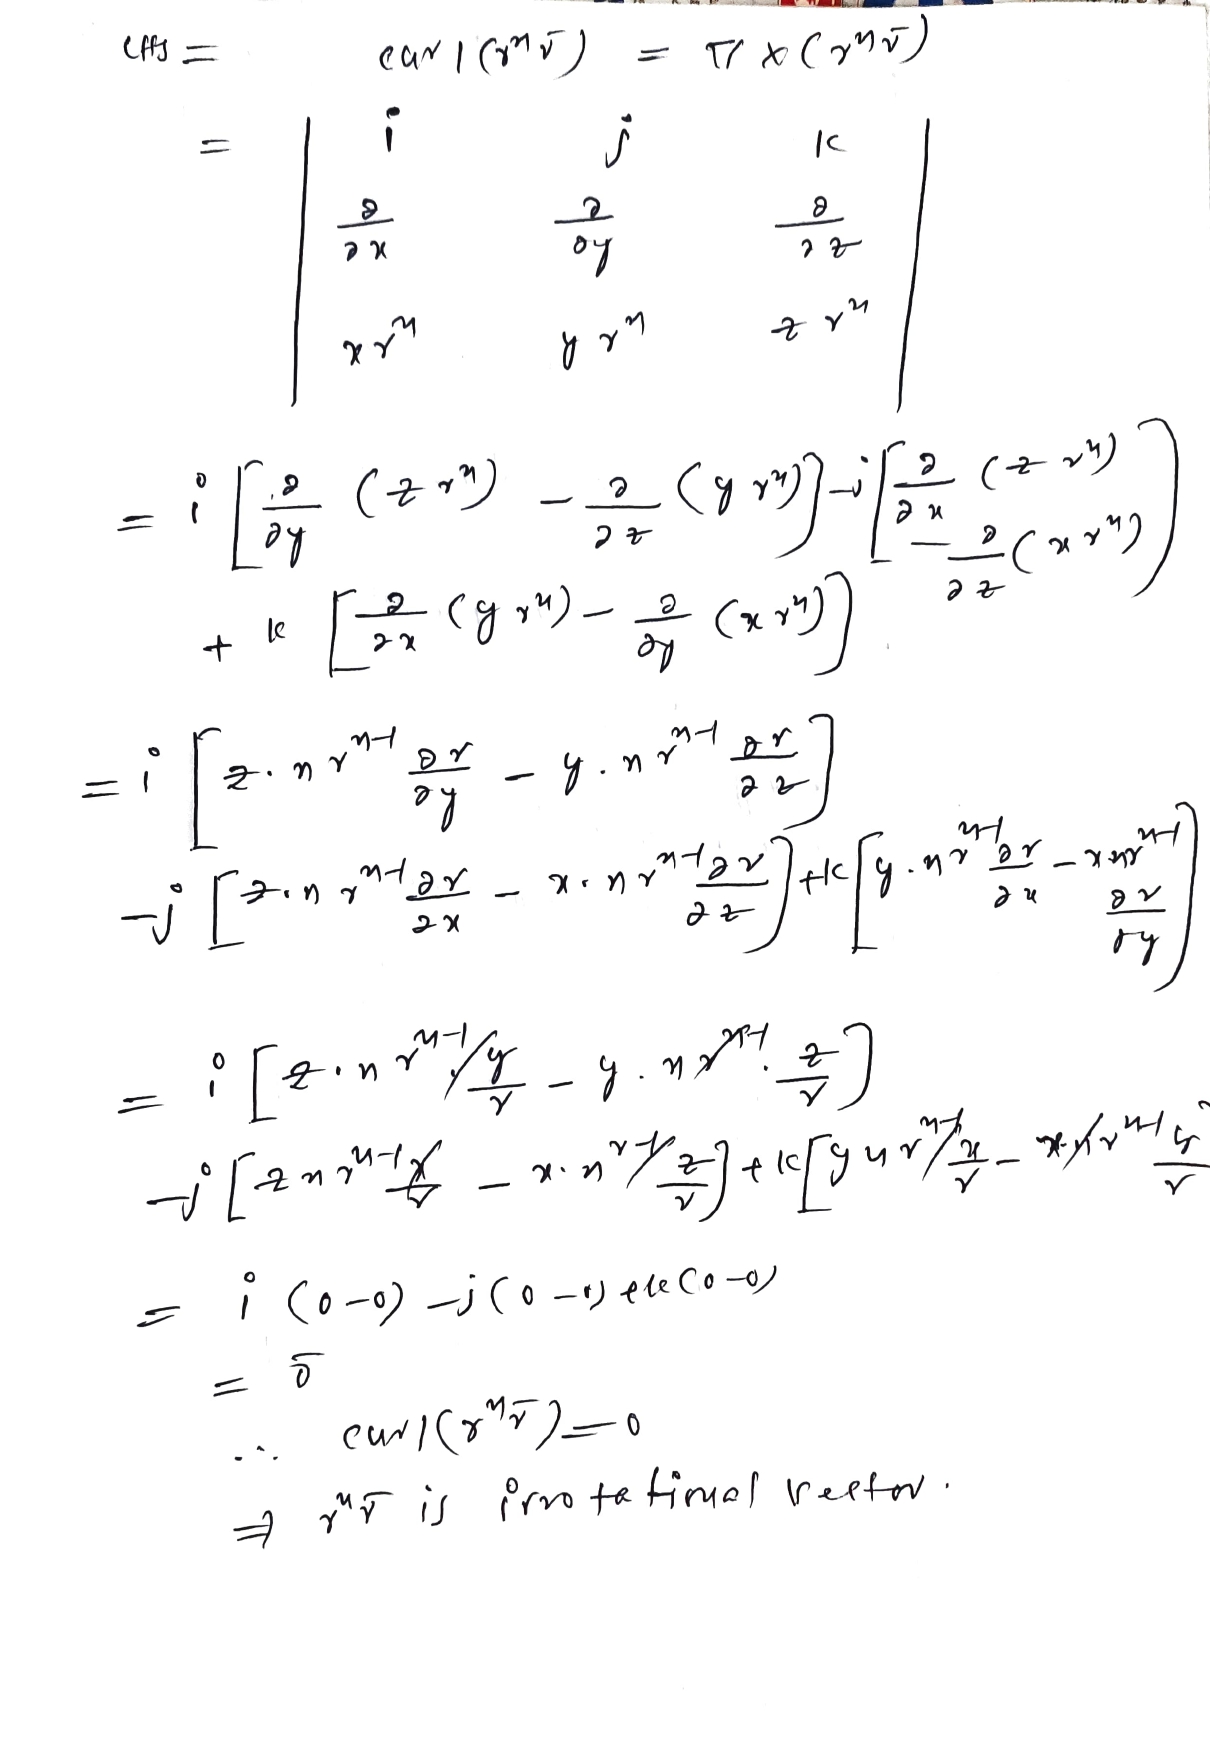 LHS = curl (rⁿ r̄) = ∇ × (rⁿ r̄)
= | i j k |
| ∂/∂x ∂/∂y ∂/∂z |
| x rⁿ y rⁿ z rⁿ |
= i [ ∂/∂y (z rⁿ) − ∂/∂z (y rⁿ) ] − j [ ∂/∂x (z rⁿ) − ∂/∂z (x rⁿ) ]
+ k [ ∂/∂x (y rⁿ) − ∂/∂y (x rⁿ) ]
= i [ z · n rⁿ⁻¹ ∂r/∂y − y · n rⁿ⁻¹ ∂r/∂z ]
− j [ z · n rⁿ⁻¹ ∂r/∂x − x · n rⁿ⁻¹ ∂r/∂z ] + k [ y · n rⁿ⁻¹ ∂r/∂x − x n rⁿ⁻¹ ∂r/∂y ]
= i [ z · n rⁿ⁻¹ y/r − y · n rⁿ⁻¹ · z/r ]
− j [ z n rⁿ⁻¹ x/r − x · n rⁿ⁻¹ z/r ] + k [ y n rⁿ⁻¹ x/r − x · n rⁿ⁻¹ y/r
= i (0−0) − j (0−0) + k (0−0)
= 0̄
∴ curl (rⁿ r̄) = 0
⇒ rⁿ r̄ is irrotational vector.